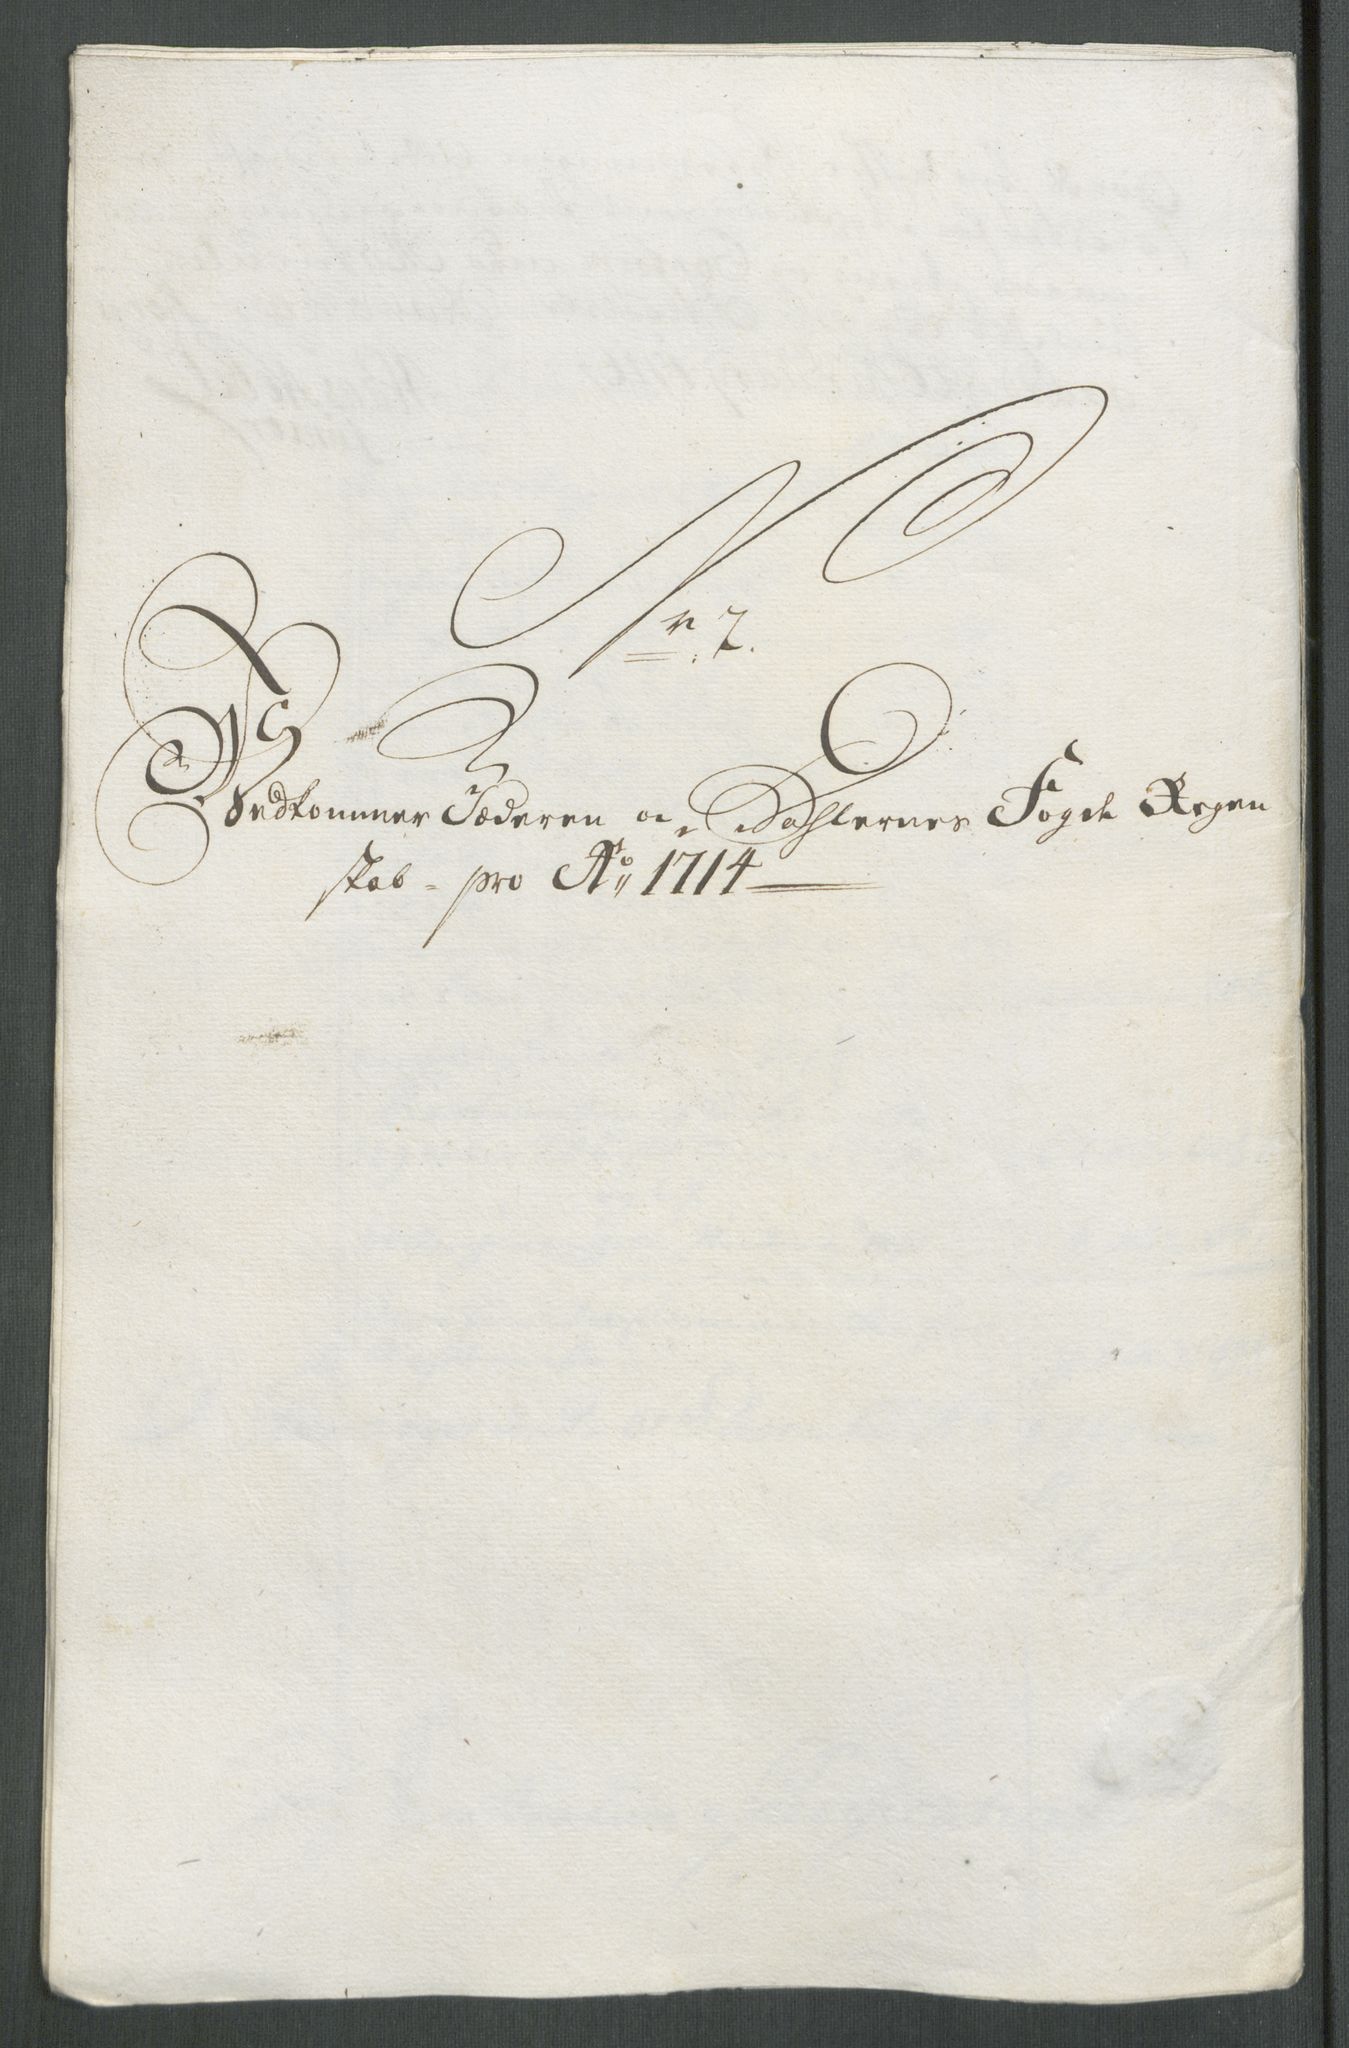 Nr: 7.
Vedkommer Jæderen og Dahlernes Fogde Regen
skab - pro Aᵒ 1714